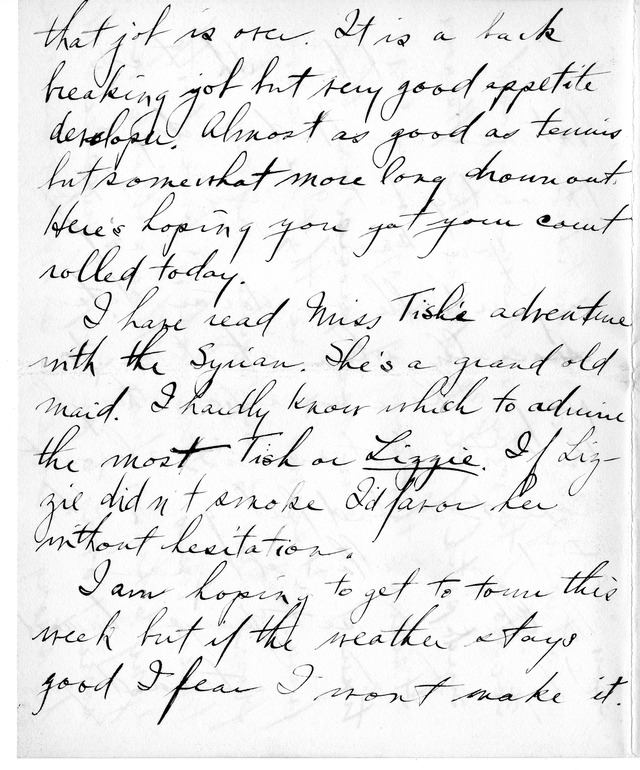 that job is over. It is a back
breaking job but very good appetite
developer. Almost as good as tennis
but somewhat more long drawn out.
Here's hoping you get your court
rolled today.
I have read Miss Tish's adventure
with the Syrian. She's a grand old
maid. I hardly know which to admire
the most Tish or Lizzie. If Liz-
zie didn't smoke I'd favor her
without hesitation.
I am hoping to get to town this
week but if the weather stays
good I fear I won't make it.